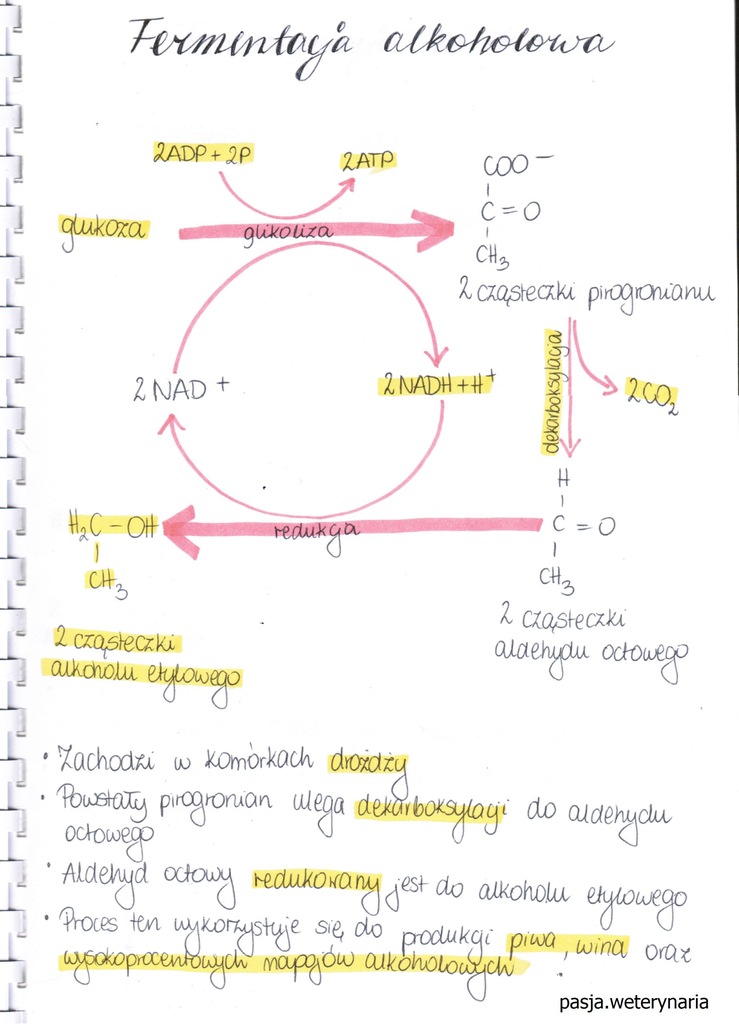 Fermentacja alkoholowa
2ADP + 2P
2ATP
COO⁻
C = O
CH₃
glukoza
glikoliza
2 cząsteczki pirogronianu
dekarboksylacja
2CO₂
2 NAD⁺
2 NADH + H⁺
H
C = O
CH₃
H₂C – OH
CH₃
redukcja
2 cząsteczki
aldehydu octowego
2 cząsteczki
alkoholu etylowego
• Zachodzi w komórkach drożdży
• Powstały pirogronian ulega dekarboksylacji do aldehydu
octowego
• Aldehyd octowy redukowany jest do alkoholu etylowego
• Proces ten wykorzystuje się do produkcji piwa, wina oraz
wysokoprocentowych napojów alkoholowych.
pasja.weterynaria